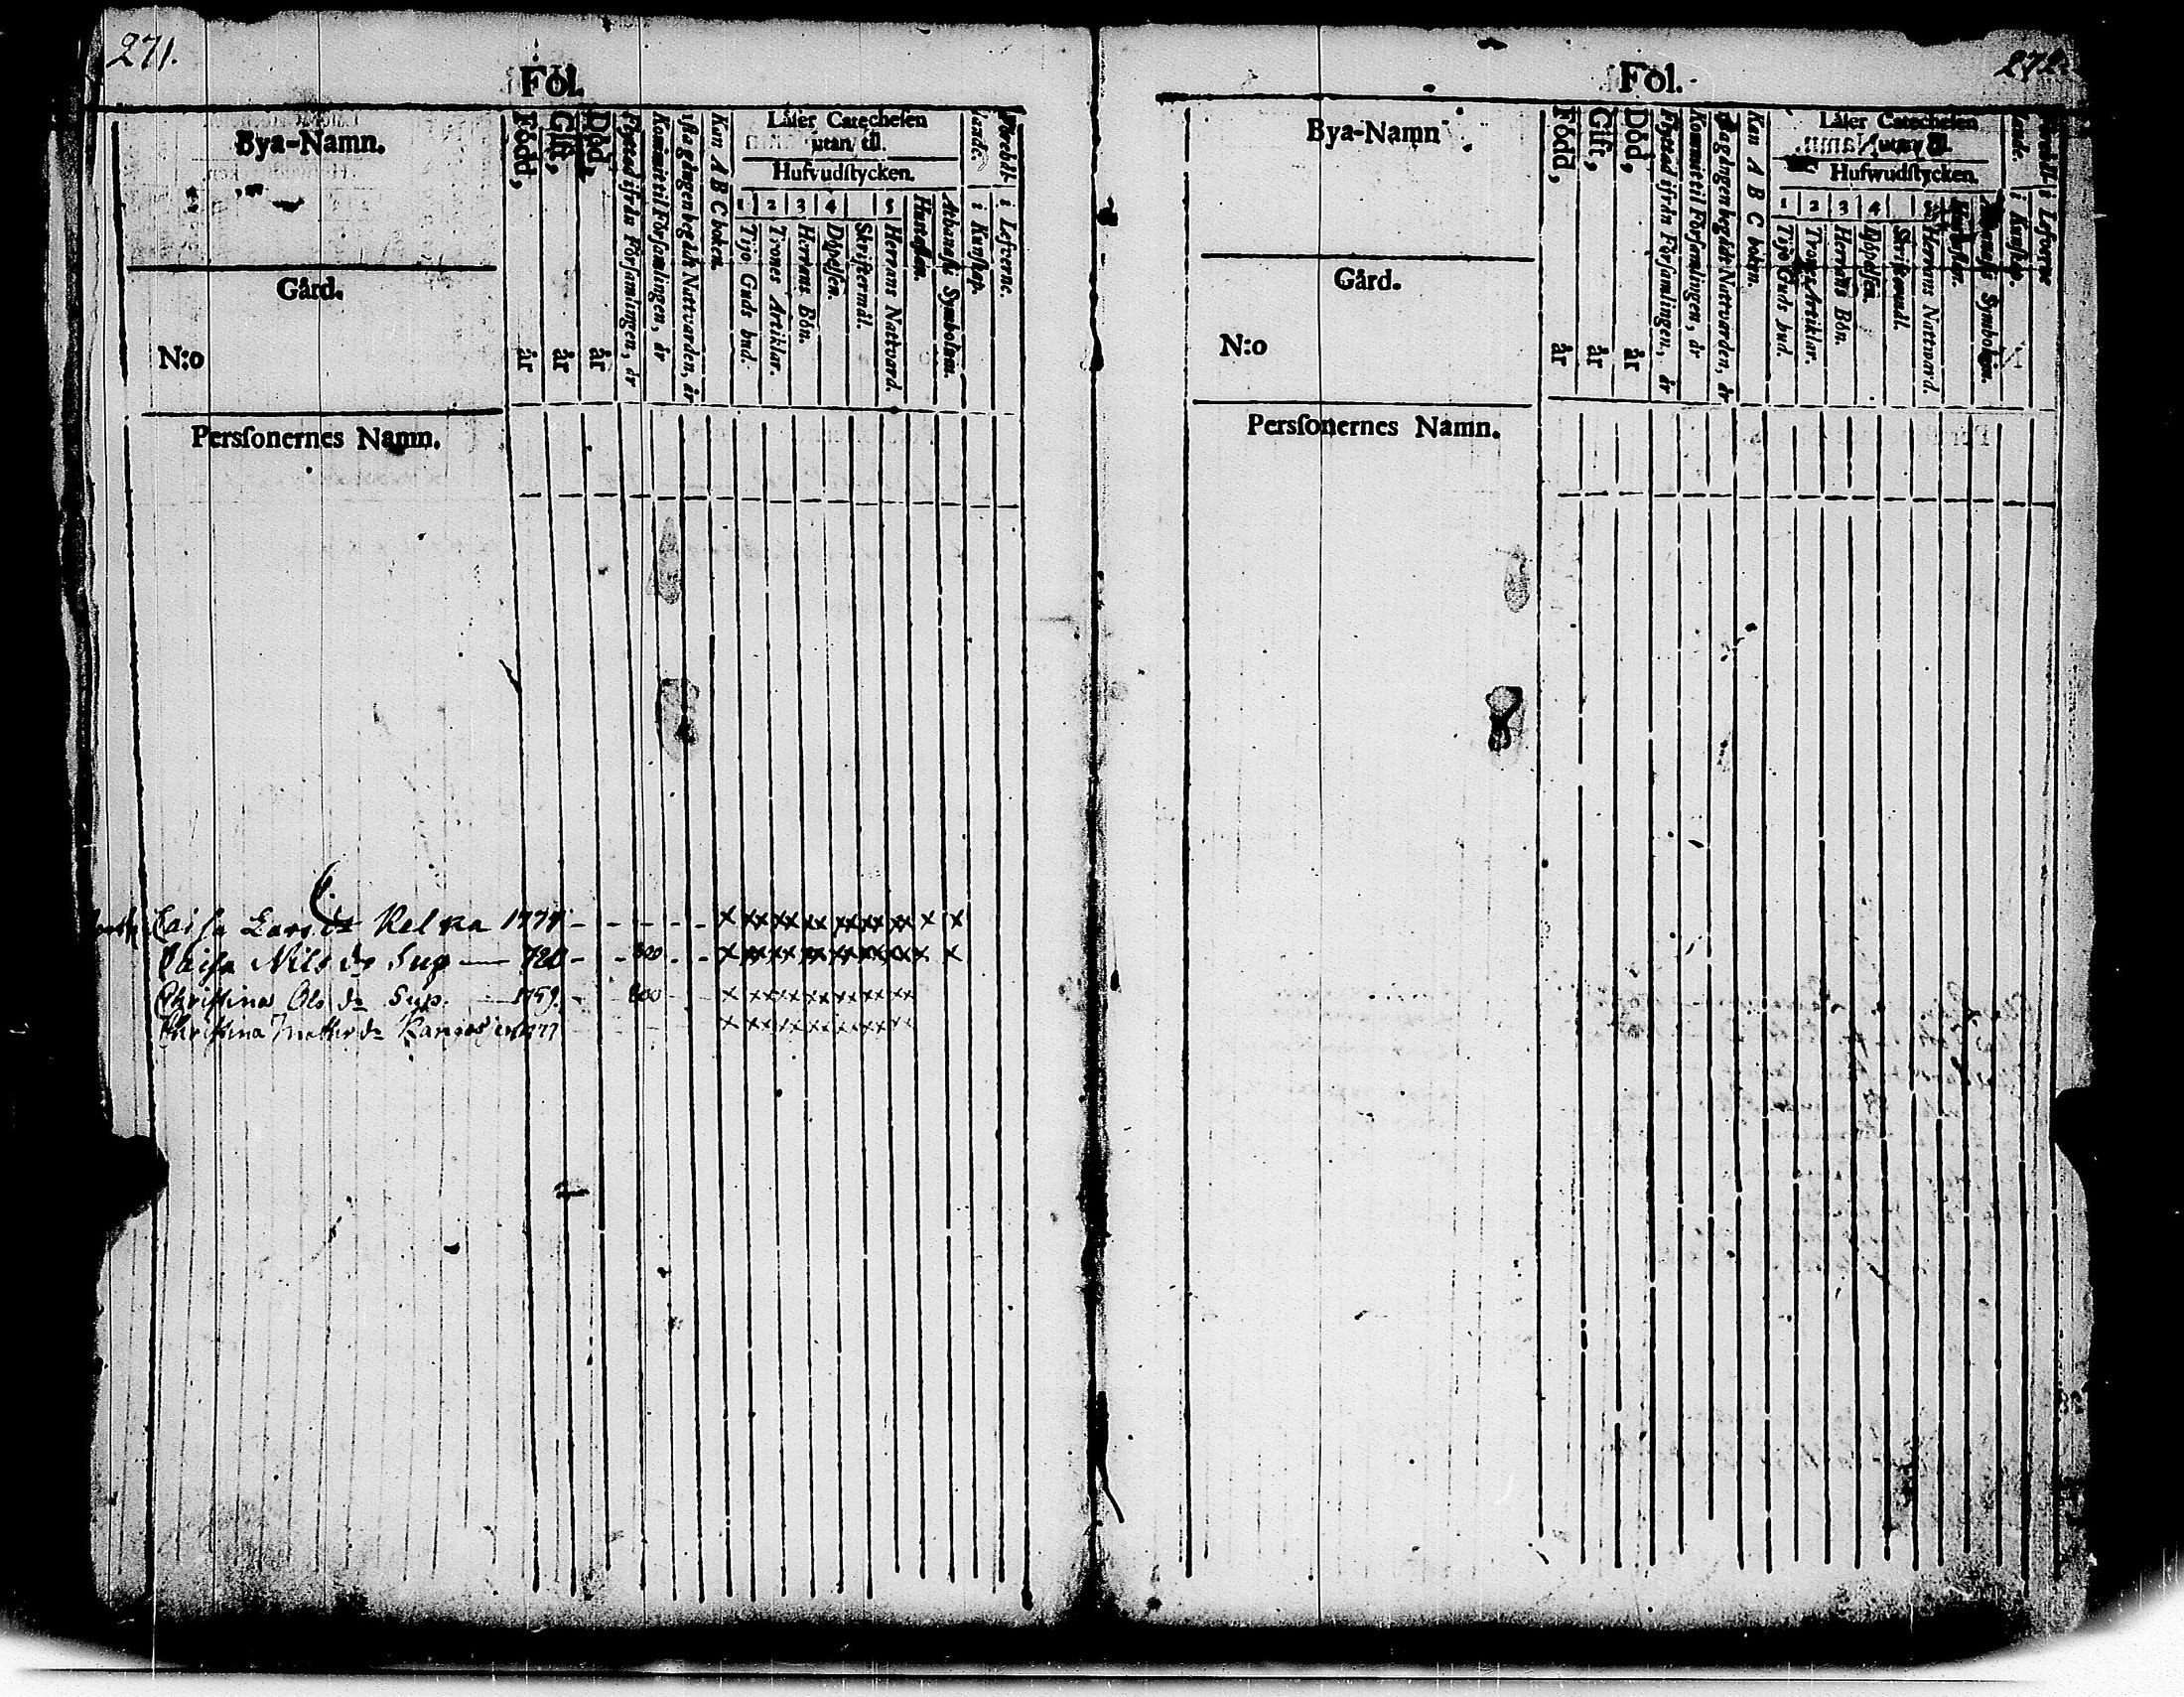 271.
Fol.
Bya-Namn.
Gård.
N:o
Född, år
Gift, år
Död, år
Flyttad ifrån Församlingen, år
Kommit til Församlingen, år
begådt Nattvarden, år
Kan A B C boken.
Läser Catechesen
utan til.
Hufvudstycken.
1 2 3 4 5
Tijo Guds bud.
Trones Artiklar.
Herrans Bön.
Döpelsen.
Skriftermål.
Herrans Nattvard.
Hustaflan.
Athanasii Symbolum.
i Kunskap.
i Lefverne.
Personernes Namn.
Caisa Lars dr
Caisa Nils dr Sup — 720 - - - 800 - - x xx xx xx xx xx xx x x
Christina Ols dr Sup. 1759. 800 x xx xx xx xx xx xx
Christina
272.
Fol.
Bya-Namn
Gård.
N:o
Född, år
Gift, år
Död, år
Flyttad ifrån Församlingen, år
Kommit til Församlingen, år
begådt Nattvarden, år
Kan A B C boken.
Läser Catechesen
utan til.
Hufwudstycken.
1 2 3 4
Tijo Guds bud.
Trones Artiklar.
Herrans Bön.
Döpelsen.
Skriftermål.
Herrans Nattward.
Symbolum.
i Kunskap.
i Lefverne
Personernes Namn.